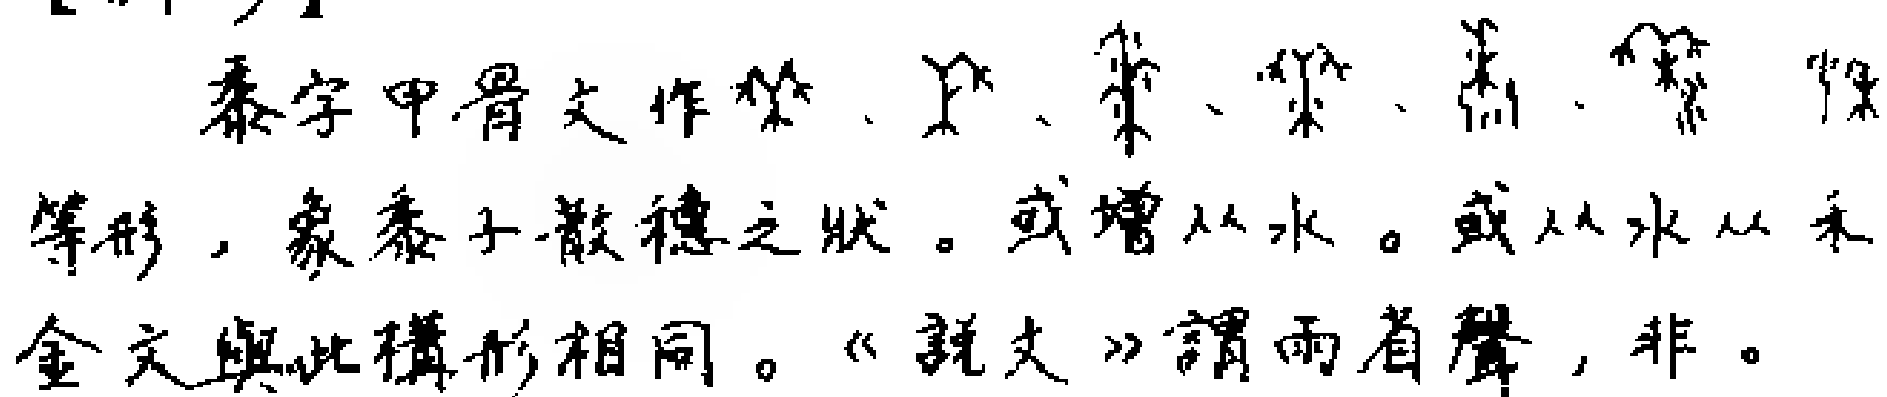 黍字甲骨文作、、、、、
等形，象黍子散穗之狀。或增从水。或从水从禾
金文與此構形相同。《説文》謂雨省聲，非。